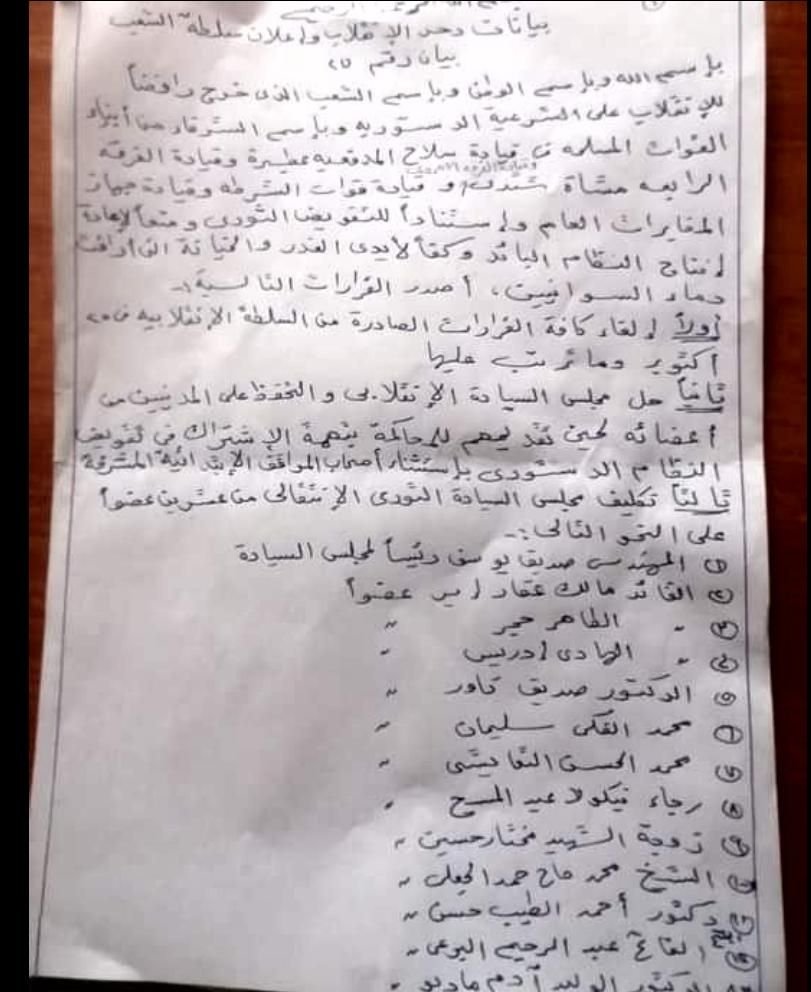 بسم الله الرحمن الرحيم
بيانات دحر الإنقلاب وإعلان سلطة الشعب
بيان رقم ٢٥
بإسم الله وبإسم الوطن وبإسم الشعب الذى خرج رافضاً
للإنقلاب على الشرعية الدستورية وبإسم الشرفاء من أبناء
القوات المسلحه فى قيادة سلاح المدفعيه عطبرة وقيادة الفرقه
الرابعه مشاة شندى و قيادة قوات الشرطه وقيادة جهاز
المخابرات العام وإستناداً للتفويض الثورى و منعاً لإعادة
إنتاج النظام البائد وكفاً لأيدى الغدر والخيانة التى أراقت
دماء السودانيين، أصدر القرارات التالية:-
أولاً إلغاء كافة القرارات الصادرة من السلطة الإنقلابيه فى ٢٥
أكتوبر وما ترتب عليها
ثانياً حل مجلس السيادة الإنقلابى و التحفظ على المدنيين من
أعضائه لحين تقديمهم للمحاكمة بتهمة الإشتراك فى تقويض
النظام الدستورى بإستثناء أصحاب المواقف الإبتدائية المشرفة
ثالثاً تكليف مجلس السيادة الثورى الإنتقالى من عشرين عضواً
على النحو التالى:-
١ المهندس صديق يوسف رئيساً لمجلس السيادة
٢ القائد مالك عقار إير عضواً
٣ " الطاهر حجر "
٤ " الهادى إدريس "
٥ الدكتور صديق تاور "
٦ محمد الفكى سليمان "
٧ محمد الحسن التعايشى "
٨ رجاء نيكولا عبد المسيح "
٩ زوجة الشهيد مختار حسين "
١٠ الشيخ محمد حاج حمد الجعلى "
دكتور أحمد الطيب حسن "
عبد الرحيم البرعى "
الدكتور الوليد آدم مادبو "